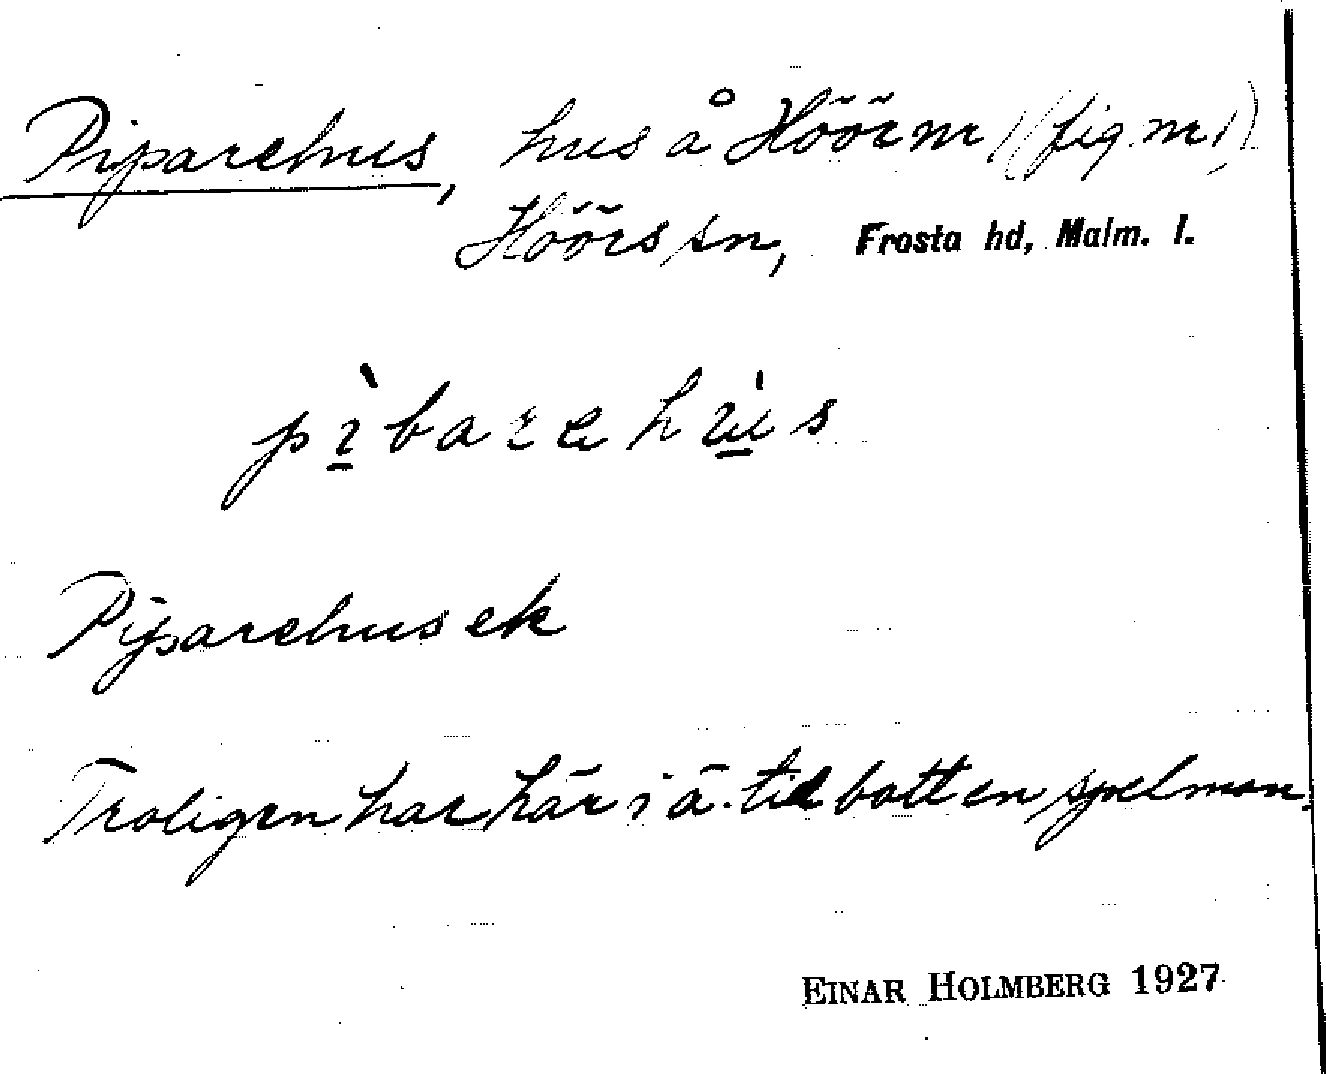 Piparehus, hus å Höör nr 1 (fig nr 1)
Höörs sn, Frosta hd, Malm. l.
pìbarehús
Piparehusek
Troligen har här i ä. tid bott en spelman.
EINAR HOLMBERG 1927